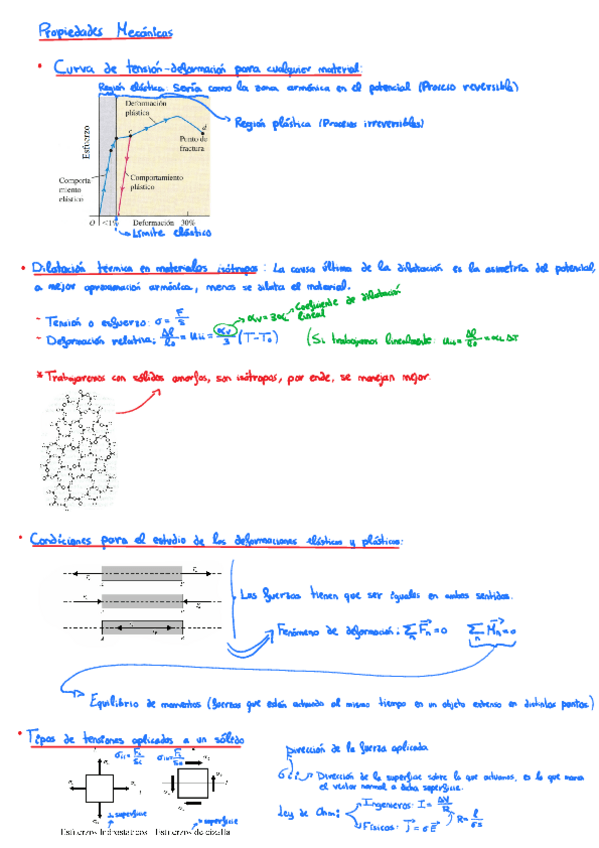 Propiedades Mecánicas
• Curva de tensión-deformación para cualquier material:
Región elástica. Sería como la zona armónica en el potencial (Proceso reversible)
Deformación
plástica
Región plástica (Procesos irreversibles)
Esfuerzo
c
d
Punto de
fractura
Comporta
miento
elástico
Comportamiento
plástico
O <1% Deformación 30%
Límite elástico
• Dilatación térmica en materiales isótropos: La causa última de la dilatación es la asimetría del potencial,
a mejor aproximación armónica, menos se dilata el material.
- Tensión o esfuerzo: σ = F/S
αv = 3αL Coeficiente de dilatación
lineal
- Deformación relativa: Δl/l₀ = uii = αv/3 (T-T₀) (Si trabajamos linealmente: uii = Δl/l₀ = αL ΔT
* Trabajaremos con sólidos amorfos, son isótropos, por ende, se manejan mejor.
• Condiciones para el estudio de las deformaciones elásticas y plásticas:
Las fuerzas tienen que ser iguales en ambos sentidos.
Fenómeno de deformación: Σn Fn = 0 Σn Mn = 0
Equilibrio de momentos (fuerzas que están actuando al mismo tiempo en un objeto extenso en distintos puntos.)
• Tipos de tensiones aplicados a un sólido
Dirección de la fuerza aplicada
Dirección de la superficie sobre la que actuamos, es la que marca
el vector normal a dicha superficie.
Ley de Ohm:
Ingenieros: I = ΔV/R
R = l/σS
Físicos: J = σE
⊥ superficie
superficie
Esfuerzos hidrostáticos Esfuerzos de cizalla